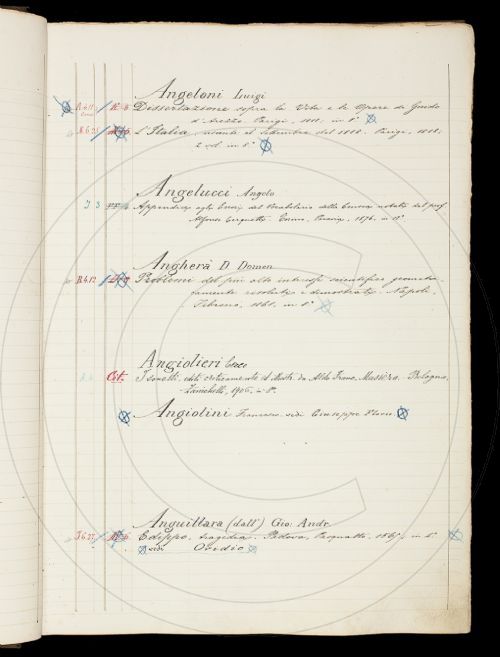 Angeloni Luigi
R.4.11 Dissertazione sopra la Vita e le Opere di Guido
d'Arezzo. Parigi, 1811; in 8°
R.6.25 L'Italia, uscente il Settembre del 1818. Parigi, 1818;
2 vol. in 8°
Angelucci Angelo
J 3 Appendice agli Errori del Vocabolario della Crusca notati dal prof.
Alfonso Cerquetti. Torino, 1876, in 8°
Angherà D. Domen
R.4.12 Problemi del più alto interesse scientifico geometri-
camente risoluti e dimostrati. Napoli,
1861, in 8°
Angiolieri Cecco
Cat. I Sonetti, editi criticamente ed illustr. da Aldo Franc. Massèra. Bologna,
Zanichelli, 1906, in 8°
Angiolini Francesco vedi Giuseppe Flavio
Anguillara (dall') Gio: Andr.
J 6.27 Edippo, tragedia. Padova, Pasquatti, 1565, in 8°
vedi Ovidio